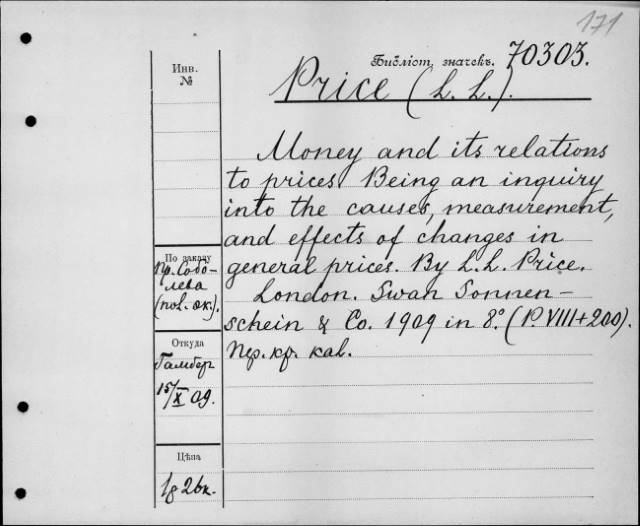 171
Библіот. значекъ. 70303.
Инв.
№
Price (L. L.).
Money and its relations
to prices Being an inquiry
into the causes, measurement,
and effects of changes in
general prices. By L. L. Price.
London. Swan Sonnen-
schein & Co. 1909 in 8.° (P. VIII+200).
Пер. кр. кал.
По заказу
Пр. Собо-
лева
(пol. эк.).
Откуда
Гамбер
15/X 09.
Цѣна
1р 26к.